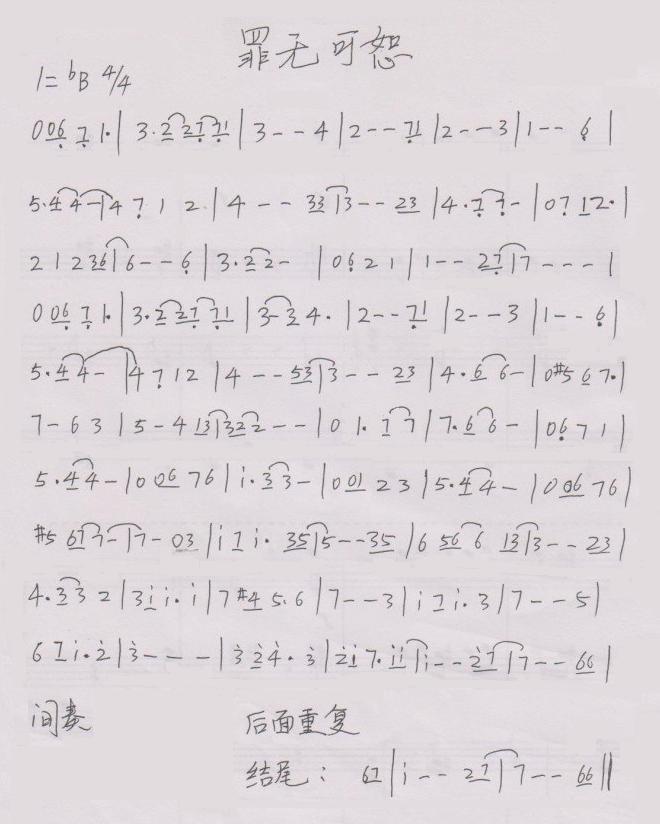 罪无可恕
1=ᵇB 4/4
0 06 7 1·| 3·2 27 71 | 3 - - 4 | 2 - - 71 | 2 - - 3 | 1 - - 6 |
5·4 4 - | 4 7 1 2 | 4 - - 33 | 3 - - 23 | 4·7 7 - | 0 7 1 2·|
2 1 2 36 | 6 - - 6 | 3·2 2 - | 0 6 2 1 | 1 - - 27 | 7 - - - |
0 06 7 1·| 3·2 27 71 | 3 - 3 4·| 2 - - 71 | 2 - - 3 | 1 - - 6 |
5·4 4 - | 4 7 1 2 | 4 - - 53 | 3 - - 23 | 4·6 6 - | 0 #5 6 7·|
7 - 6 3 | 5 - 4 13 | 32 2 - - | 0 1·7 7 | 7·6 6 - | 0 6 7 1 |
5·4 4 - | 0 06 76 | i·3 3 - | 0 01 2 3 | 5·4 4 - | 0 06 76 |
#5 67 7 - | 7 - 03 | i 1 i· 35 | 5 - - 35 | 6 56 6 13 | 3 - - 23 |
4·3 3 2 | 3 i i·i | 7 #4 5·6 | 7 - - 3 | i 1 i·3 | 7 - - 5 |
6 1 i·2̇ | 3̇ - - - | 3̇ 2̇ 4̇·3̇ | 2̇i 7·ii | i - - 2̇7 | 7 - - 66 |
间奏 后面重复
结尾： 67 | i - - 27 | 7 - - 66 ‖